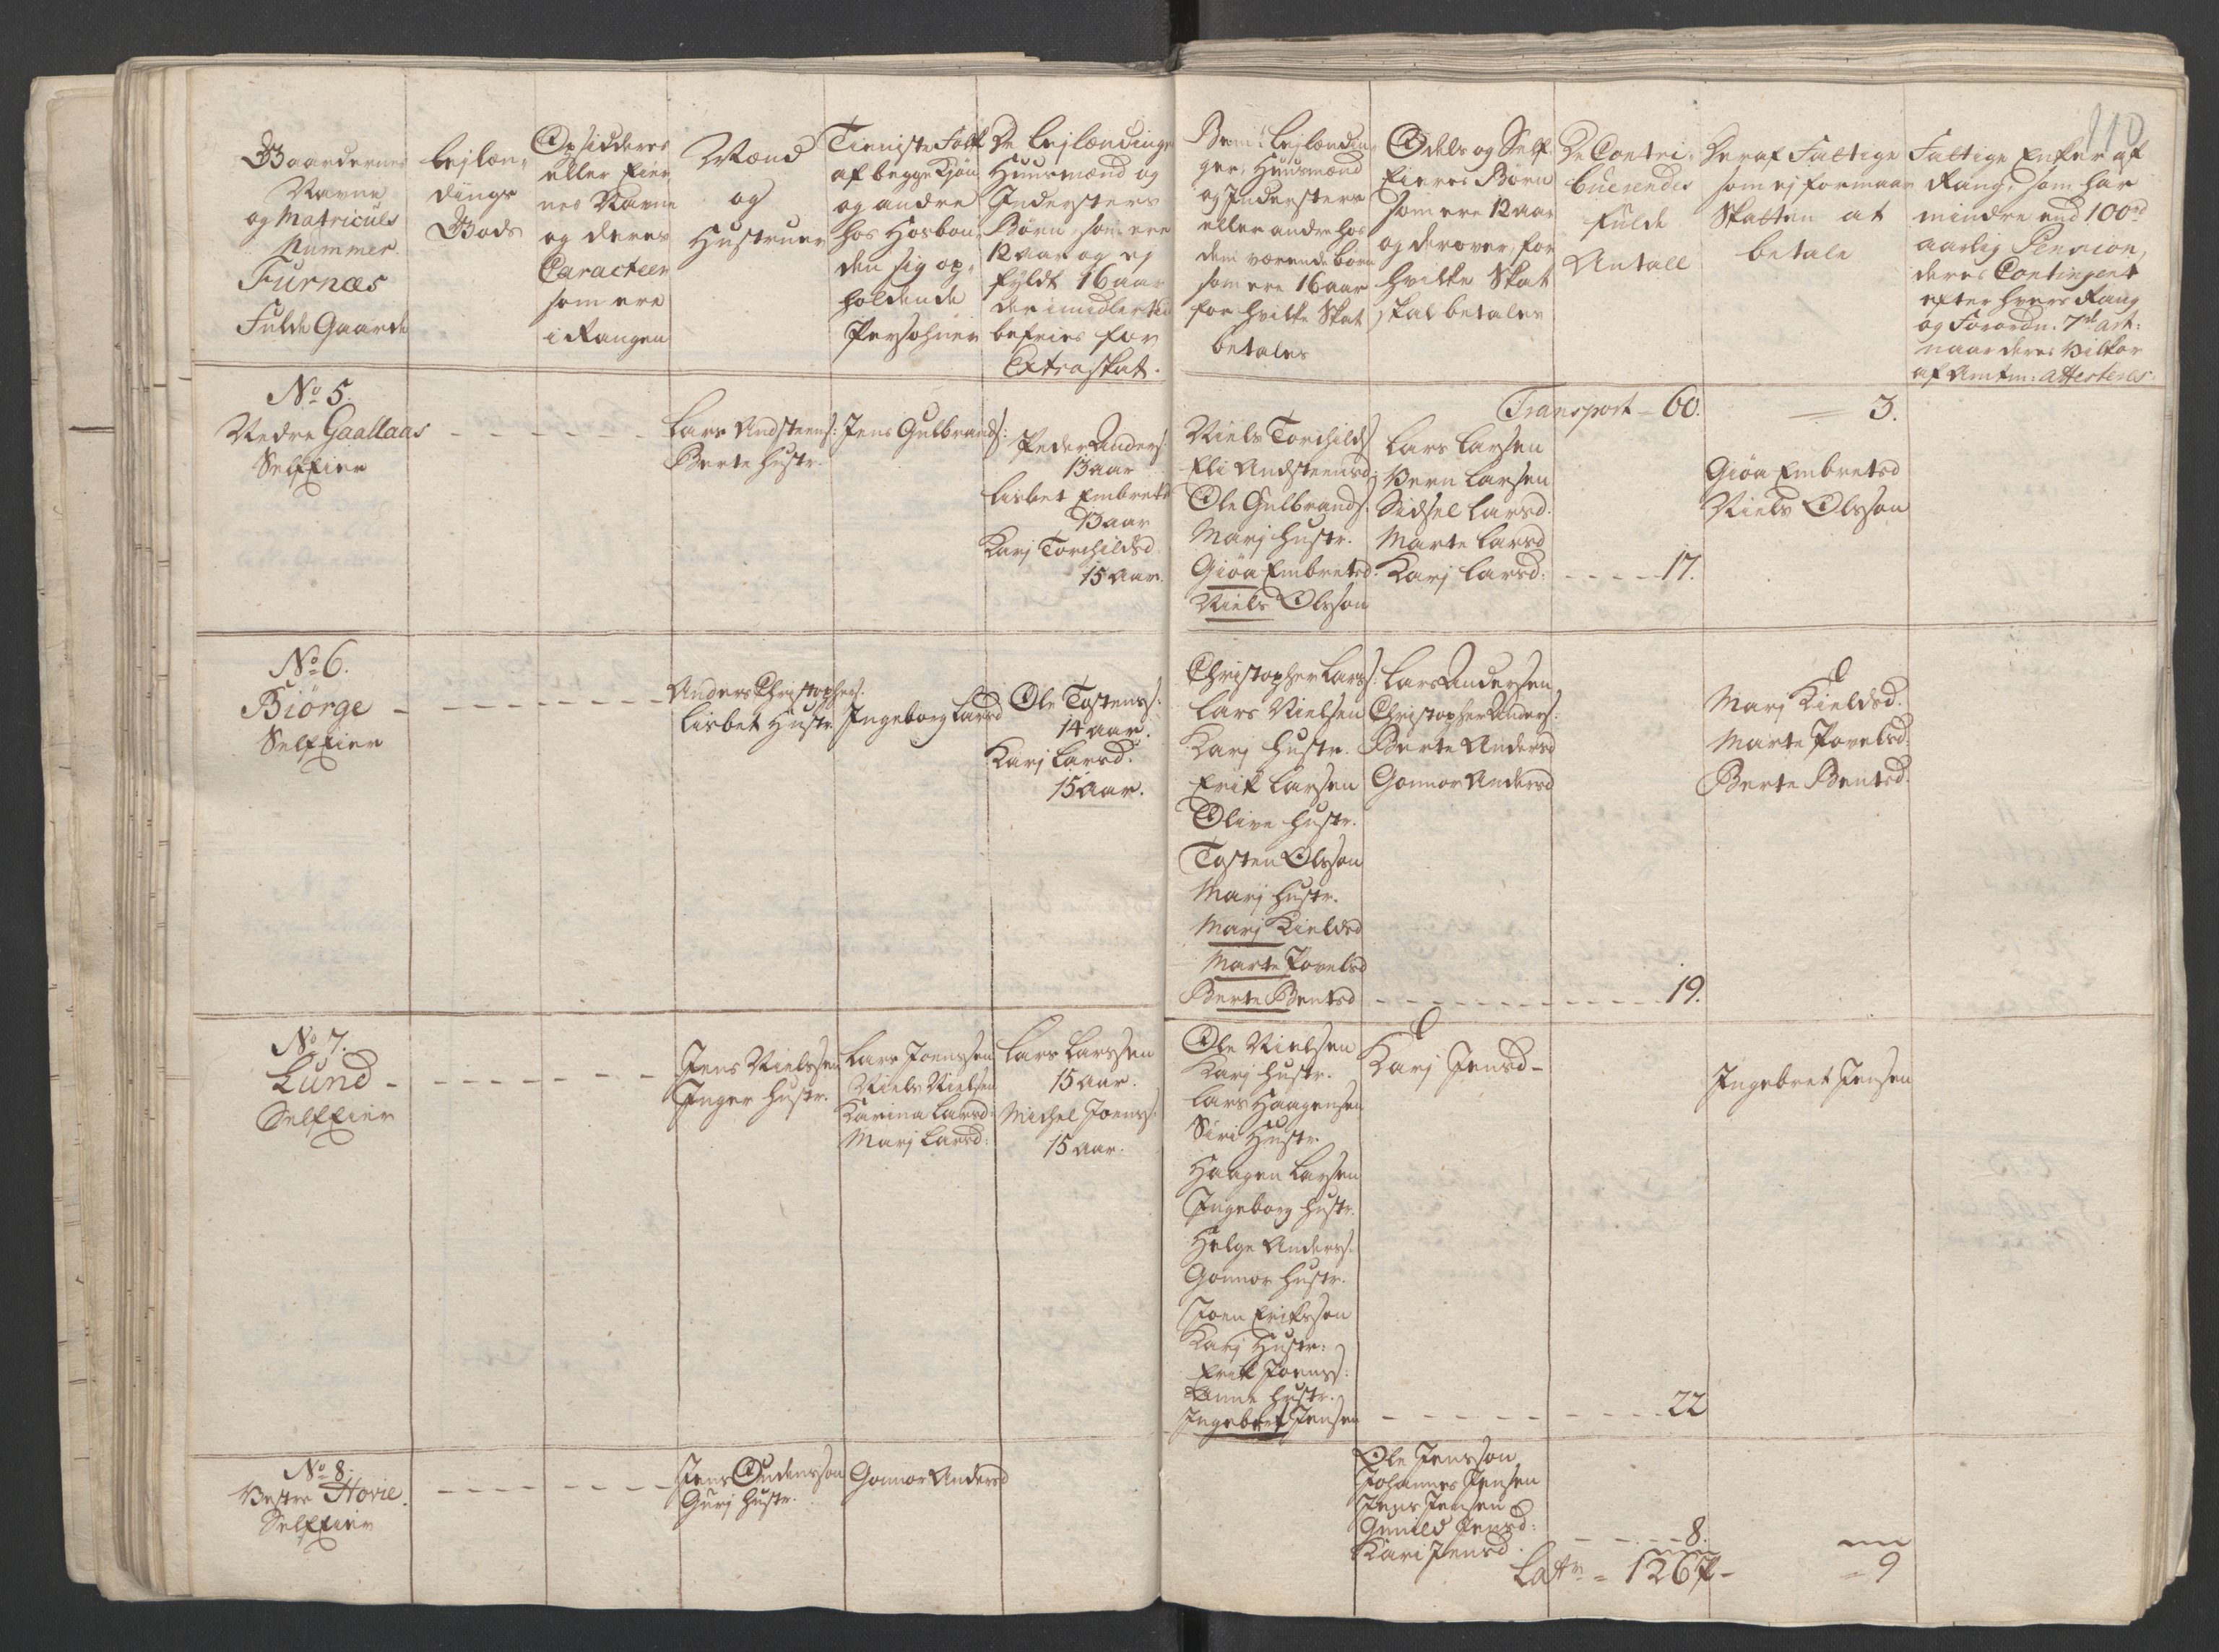 110
Gaardernes
Navne
og Matriculs
Nummer.
Furnæs
Fulde Gaarde
Lejlæn-
dings
Gods
Opsidderes
eller Eier
nes Navne
og deres
Caracteer
som ere
i Rangen
Mænd
og
Hustruer
Tieniste Folk
af begge Kjøn
og andre
hos Hosbon
den sig op-
holdende
Persohner
De Lejlændinge
Huusmænd og
Indersters
Børn, som ere
12 aar og ej
fyldt 16 aar
der imidlertid
befries for
Extraskat.
Bem: Lejlændin-
ger, Huusmænd
og Inderster
eller andre hos
dem værende børn
som ere 16 aar
for hvilke Skat
betales
Odels og Self
Eieres Børn
som ere 12 aar
og derover, for
hvilke Skat
skal betales
De Contri-
buerendes
fulde
Antall
Deraf Fattige
som ej formaar
Skatten at
betale
Fattige Enker af
Rang, som har
mindre end 100rd
aarlig Pension,
deres Contingent
efter hvers Rang
og Forordn: 7de art:
naar deres Vilkor
af Amtm: attesteres.
Transport - 60.
3.
No 5.
Nedre Gaallaas
SelfEier
Lars Andsteens:
Berte Hustr.
Jens Gulbrands:
Peder Anders:
13 aar
Lisbet Embretsd
13 aar
Karj Torchildsd.
15 aar.
Niels Torchilds:
Eli Andsteensd:
Ole Gulbrands:
Marj Hustr.
Giøa Embretsd.
Niels Olsson
Lars Larsen
Bern Larsen
Sidsel Larsd.
Marte Larsd
Karj Larsd:
17.
Giøa Embretsd
Niels Olsson
No 6.
Biørge
SelfEier
Anders Christophers:
Lisbet Hustr.
Ingeborg Larsd
Ole Tostens:
14 aar.
Karj Larsd:
15 aar.
Christopher Lars:
Lars Nielsen
Karj Hustr.
Erik Larsen
Olive Hustr.
Tosten Olsson
Marj Hustr.
Marj Kieldsd
Marte Povelsd
Berte Bentsd
Lars Andersen
Christopher Anders:
Berte Andersd
Gonnor Andersd
19.
Marj Kieldsd.
Marte Povelsd:
Berte Bentsd.
No 7.
Lund
SelfEier
Jens Nielssen
Inger Hustr.
Lars Joenssen
Niels Nielsen
Karina Larsd:
Marj Larsd:
Lars Larssen
15 aar.
Michel Joens:
15 aar.
Ole Nielsen
Karj Hustr.
Lars Haagensen
Siri Hustr
Haagen Larsen
Ingeborg Hustr.
Helge Anders:
Gonnor Hustr.
Joen Erikssen
Karj Hustr:
Erik Joens:
Anne Hustr.
Ingebret Jensen
Karj Jensd
22
Ingebret Jensen
No 8.
Vestre Hovie.
SelfEier
Jens Oudensson
Gurj Hustr.
Gonnor Andersd
Ole Jensson
Johannes Jensen
Jens Jensen
Gunild Jensd:
Kari Jensd.
8.
Latr = 126 P
9